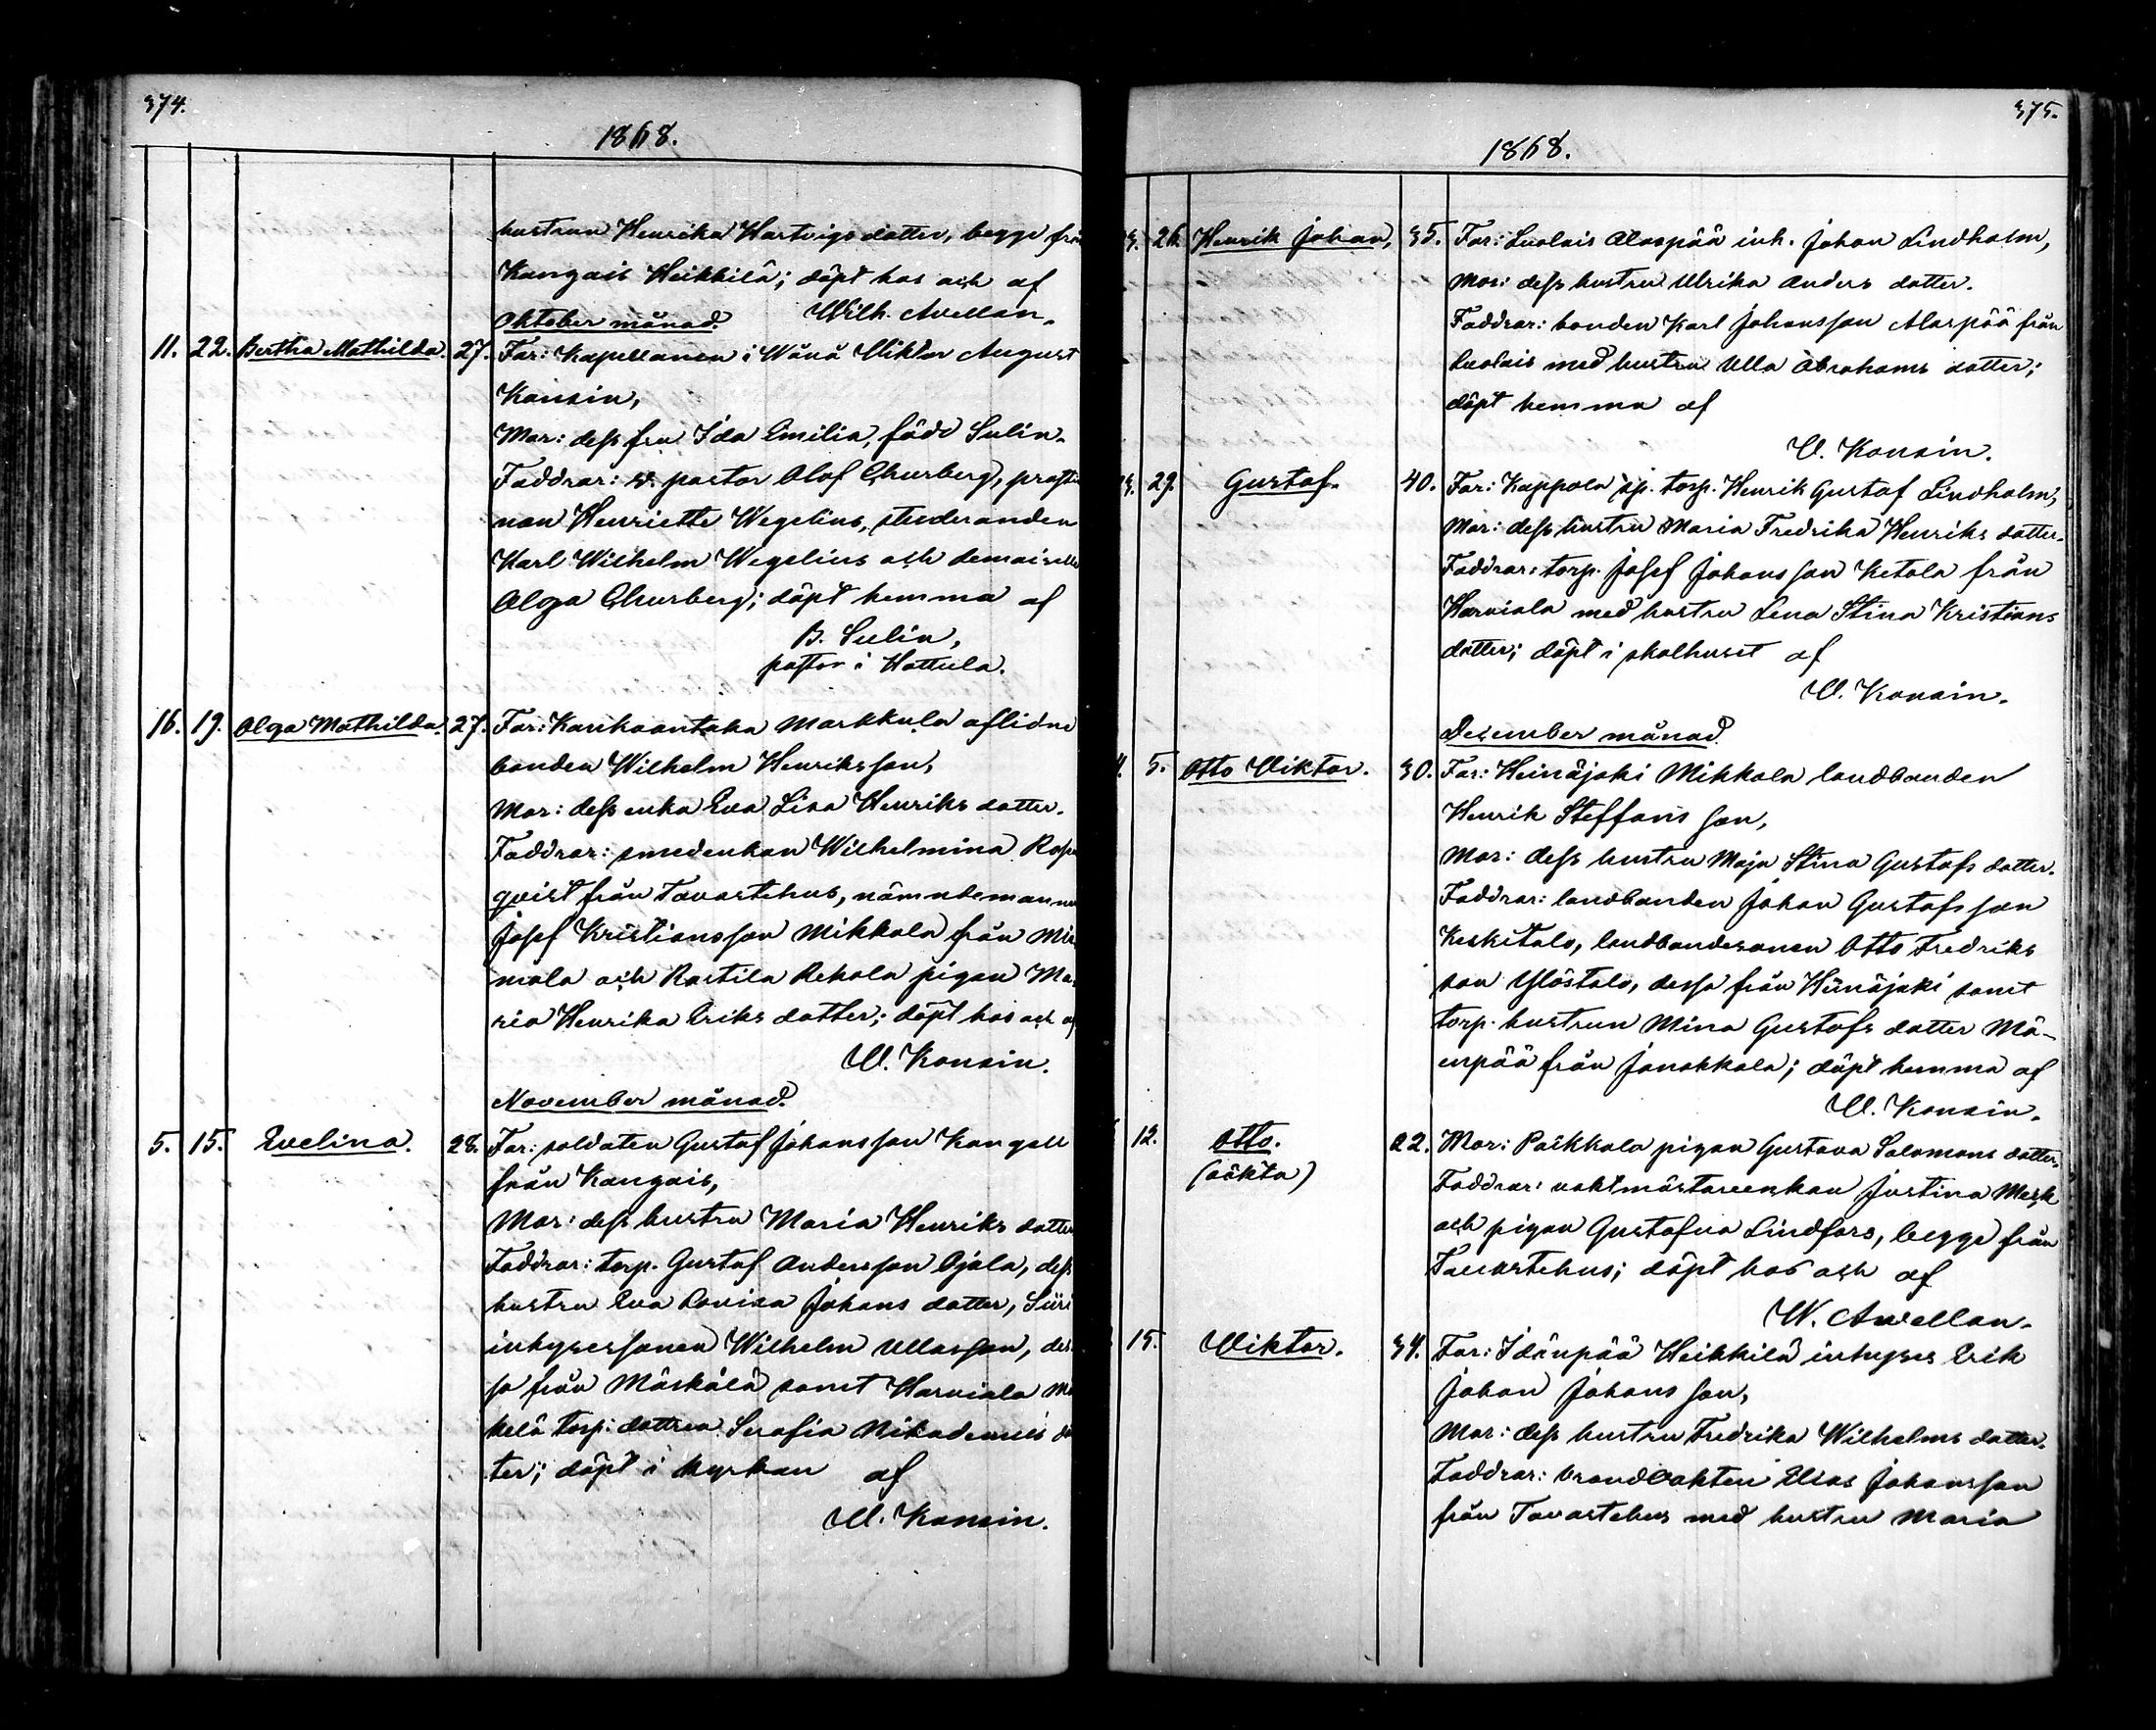 374.
1868.
hustrun Henrika Hartvigsdotter, begge från
Kangais Heikkilä; döpt hos och af
Oktober månad. Wilh. Avellan.
11. 22. Bertha Mathilda. 27. Far: Kapellanen i Wånå Viktor August
Konsin,
Mor: dess fru Ida Emilia, född Sulin.
Faddrar: v. pastor Olof Churberg, prosti
nan Henriette Wegelius, studeranden
Karl Wilhelm Wegelius och demoiselle
Olga Churberg; döpt hemma af
B. Sulin,
pastor i Hattula.
16. 19. Olga Mathilda. 27. Far: Kankaantaka Markkula aflidne
bonden Wilhelm Henriksson,
Mor: dess enka Eva Lisa Henriks dotter.
Faddrar: smedenkan Wilhelmina Rosen
qvist från Tavastehus, nämndemannen
Josef Kristiansson Mikkola från Mie
mola och Rastila Rekola pigan Ma
ria Henrika Eriks dotter; döpt hos och af
V. Konsin.
November månad.
5. 15. Evelina. 28. Far: soldaten Gustaf Johansson Kangell
från Kangais,
Mor: dess hustru Maria Henriks dotter
Faddrar: torp. Gustaf Andersson Ojala, dess
hustru Eva Lovisa Johans dotter, Siiri
inhysessonen Wilhelm Ullasson, des
sa från Mäskälä samt Harviala Mä
kelä torp: dottren Serafia Nikodemus dot
ter; döpt i kyrkan af
V. Konsin.
375.
1868.
3. 26. Henrik Johan, 35. Far: Luolais Alaspää inh. Johan Lindholm,
Mor: dess hustru Ulrika Anders dotter.
Faddrar: bonden Karl Johansson Alaspää från
Luolais med hustru Ulla Abrahams dotter;
döpt hemma af
V. Konsin.
3. 29. Gustaf. 40. Far: Kappola sp. torp. Henrik Gustaf Lindholm,
Mor: dess hustru Maria Fredrika Henriks dotter.
Faddrar: torp. Josef Johansson Ketola från
Harviala med hustru Lena Stina Kristians
dotter; döpt i skolhuset af
V. Konsin.
December månad.
4. 5. Otto Viktor. 30. Far: Heinäjoki Mikkola landbonden
Henrik Steffans son,
Mor: dess hustru Maja Stina Gustafs dotter.
Faddrar: landbonden Johan Gustafsson
Keskitalo, landbondesonen Otto Fredriks
son Ylöstalo, dessa från Heinäjoki samt
torp. hustrun Mina Gustafs dotter Mä-
enpää från Janakkala; döpt hemma af
V. Konsin.
12. Otto. 22. Mor: Paikkala pigan Gustava Salomons dotter,
(oäkta) Faddrar: vaktmästareenkan Justina Mesk
och pigan Gustafva Lindfors, begge från
Tavastehus; döpt hos och af
W. Avellan.
15. Viktor. 34. Far: Idänpää Heikkilä inhyses Erik
Johan Johans son,
Mor: dess hustru Fredrika Wilhelms dotter.
Faddrar: brandvakten Elias Johansson
från Tavastehus med hustru Maria